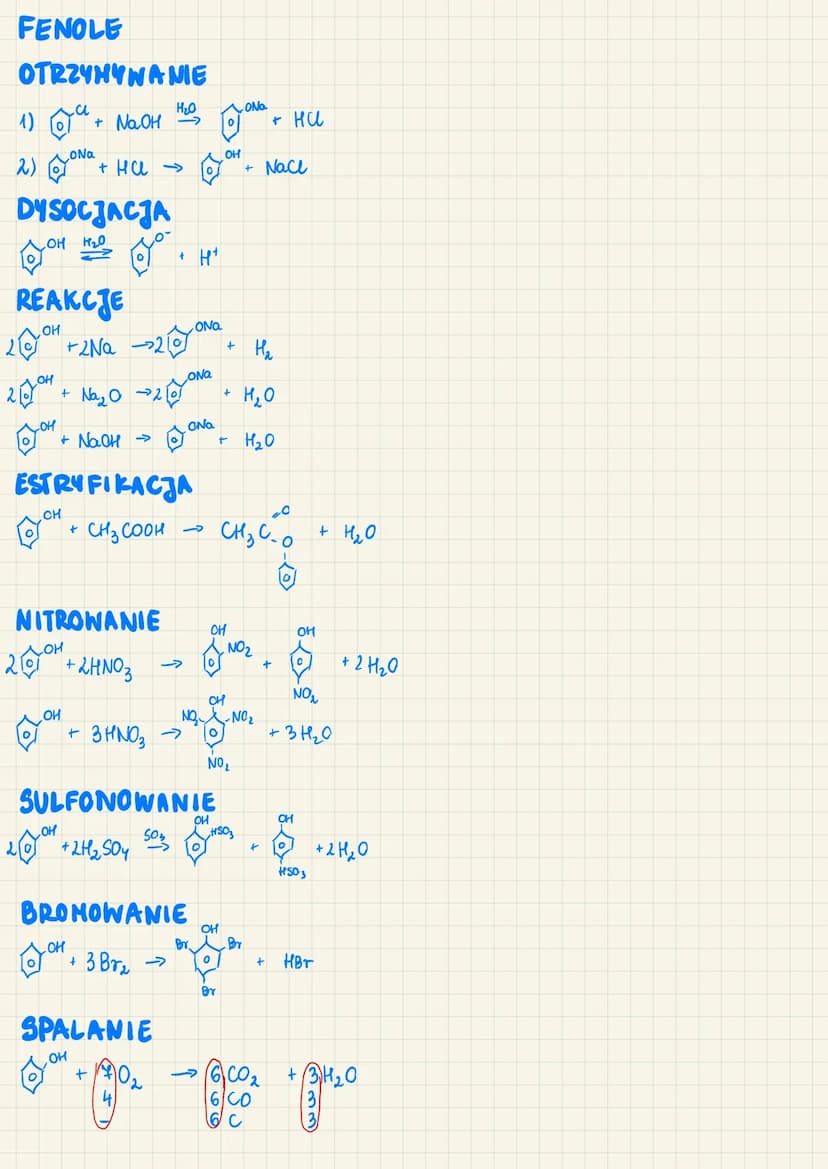 FENOLE
OTRZYMYWANIE
1) Cl + NaOH H₂O → ONa + HCl
2) ONa + HCl → OH + NaCl
DYSOCJACJA
OH H₂O ⇌ O⁻ + H⁺
REAKCJE
2 OH + 2Na → 2 ONa + H₂
2 OH + Na₂O → 2 ONa + H₂O
OH + NaOH → ONa + H₂O
ESTRYFIKACJA
OH + CH₃COOH → CH₃C=O-O + H₂O
NITROWANIE
2 OH + 2HNO₃ → OH NO₂ + OH NO₂ + 2H₂O
OH + 3HNO₃ → OH NO₂ NO₂ NO₂ + 3H₂O
SULFONOWANIE
2 OH + 2H₂SO₄ SO₃ → OH HSO₃ + OH HSO₃ + 2H₂O
BROMOWANIE
OH + 3Br₂ → OH Br Br Br + HBr
SPALANIE
OH + 7O₂ → 6CO₂ + 3H₂O
4 6CO 3
– 6C 3